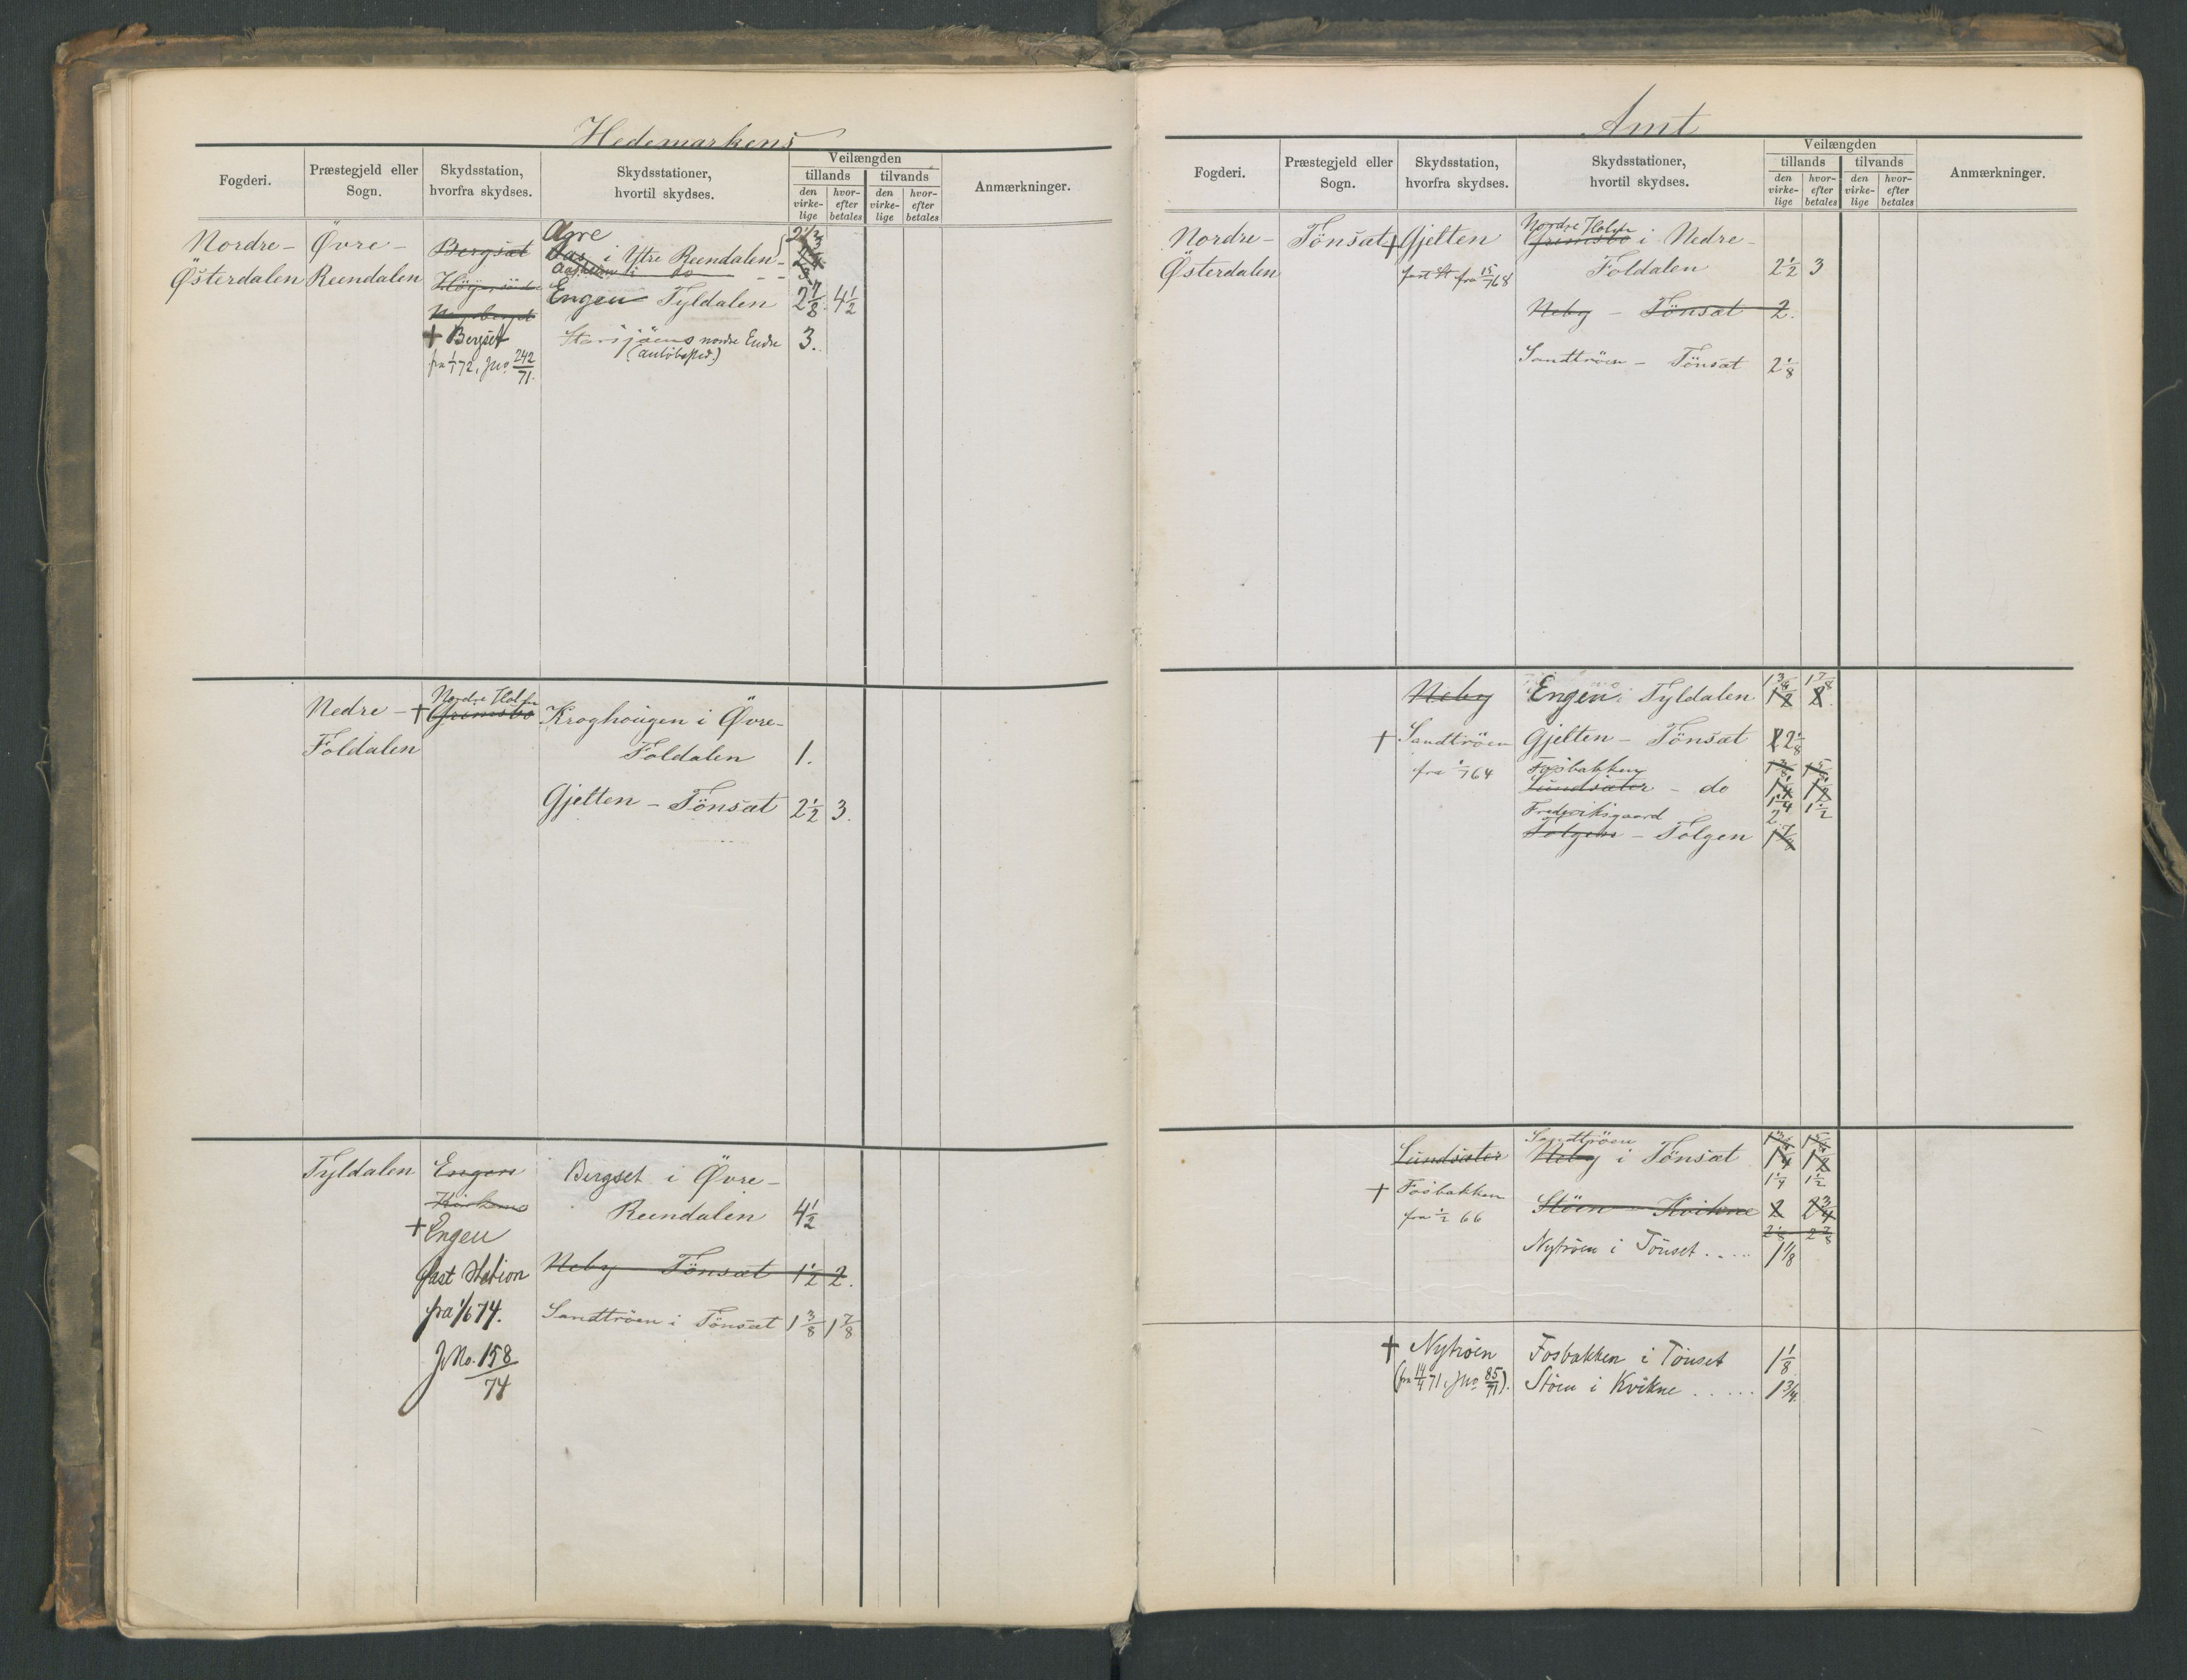 Hedemarkens
Fogderi. Præstegjeld eller Sogn. Skydsstation, hvorfra skydses. Skydsstationer, hvortil skydses. Veilængden Anmærkninger.
tillands tilvands
den virkelige hvorefter betales den virkelige hvorefter betales
Agre
Nordre- Øvre- Bergsæt Aas i Ytre Reendalen
Aasheim i do
Østerdalen Reendalen Engen Tyldalen 2 7/8 4 1/2
+ Bergset Storsjöens nordre Ende 3.
fra 1/1 72, Jno. 242/71. (anløbssted.)
Nordre
Nedre - + Grimsbo Kroghougen i Øvre-
Foldalen Foldalen 1.
Gjelten - Tönsæt 2 1/2 3.
Tyldalen Engen Bergset i Øvre-
Reendalen 4 1/2
+ Engen
fast Station Neby Tönsæt 1 1/2 2.
fra 1/6 74. Sandtröen i Tönsæt 1 3/8 1 7/8
J.No. 158/74
Amt
Fogderi. Præstegjeld eller Sogn. Skydsstation, hvorfra skydses. Skydsstationer, hvortil skydses. Veilængden Anmærkninger.
tillands tilvands
den virkelige hvorefter betales den virkelige hvorefter betales
Nordre
Nordre- Tönsæt + Gjelten Grimsbo i Nedre-
Østerdalen fast St fra 15/7 68 Foldalen 2 1/2 3
Neby - Tönsæt 2.
Sandtröen - Tönsæt 2 1/8
1 3/8 1 7/8
Neby Engen i Tyldalen 1 1/2 2.
+ Sandtröen Gjelten - Tönsæt 2 2 1/8
fra 1/7 64 Fosbakken
Lundsæter - do
1 1/4 1 1/2
Frederiksgaard 2.
Tolgen - Tolgen 1 7/8
Sandtröen
Lundsæter Neby i Tönsæt 1 1/4 1 1/2
+ Fosbakken 1 1/4 1 1/2
fra 1/2 66 Stöen Kvikne 2 2 3/4
2 1/8 2 7/8
Nytröen i Tönset.... 1 1/8
+ Nytröen Fosbakken i Tönset 1 1/8
(fra 14/4 71, Jno 85/71). Stöen i Kvikne ..... 1 3/4